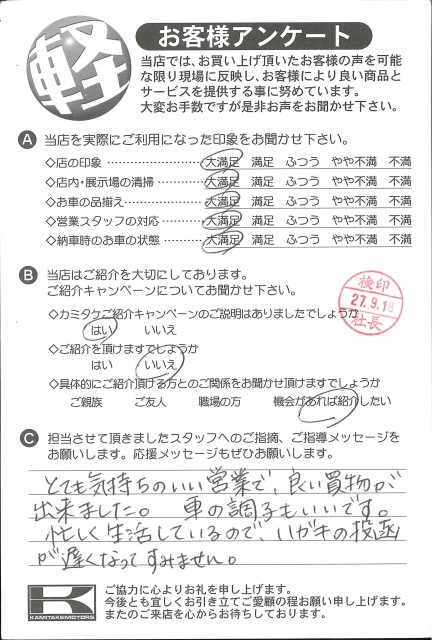 軽
お客様アンケート
当店では、お買い上げ頂いたお客様の声を可能
な限り現場に反映し、お客様により良い商品と
サービスを提供する事に努めています。
大変お手数ですが是非お声をお聞かせ下さい。
A 当店を実際にご利用になった印象をお聞かせ下さい。
◇店の印象 大満足 満足 ふつう やや不満 不満
◇店内・展示場の清掃 大満足 満足 ふつう やや不満 不満
◇お車の品揃え 大満足 満足 ふつう やや不満 不満
◇営業スタッフの対応 大満足 満足 ふつう やや不満 不満
◇納車時のお車の状態 大満足 満足 ふつう やや不満 不満
B 当店はご紹介を大切にしてあります。
ご紹介キャンペーンについてお聞かせ下さい。
◇カミタケご紹介キャンペーンのご説明はありましたでしょうか
はい いいえ
検印
27.9.18
社長
◇ご紹介を頂けますでしょうか
はい いいえ
◇具体的にご紹介頂ける方とのご関係をお聞かせ頂けますでしょうか
ご親族 ご友人 職場の方 機会があれば紹介したい
C 担当させて頂きましたスタッフへのご指摘、ご指導メッセージを
お願いします。応援メッセージもぜひお願いします。
とても気持ちのいい営業で、良い買物が
出来ました。 車の調子もいいです。
忙しく生活しているので、ハガキの投函
が遅くなってすみません。
K
KAMITAKEMOTORS
ご協力に心よりお礼を申し上げます。
今後とも宜しくお引き立てご愛顧の程お願い申し上げます。
またのご来店を心からお待ちしております。